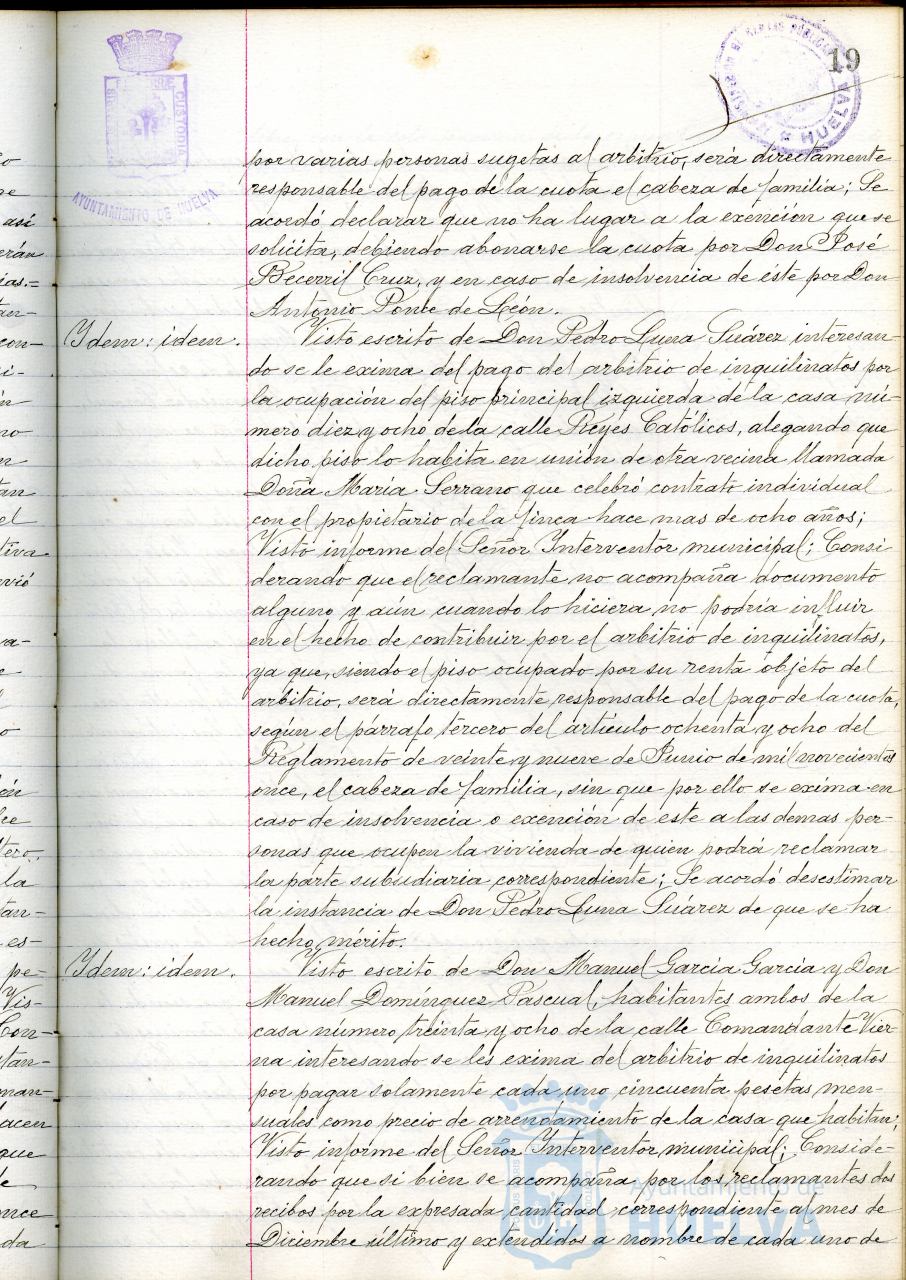 19
AYUNTAMIENTO DE HUELVA
HUELVA
por varias personas sugetas al arbitrio, será directamente
responsable del pago de la cuota el cabeza de familia; Se
acordó declarar que no ha lugar a la exención que se
solicita, debiendo abonarse la cuota por Don José
Becerril Cruz, y en caso de insolvencia de éste por Don
Antonio Ponce de León.
Idem: idem. Visto escrito de Don Pedro Luna Suárez interesan-
do se le exima del pago del arbitrio de inquilinatos por
la ocupación del piso principal izquierda de la casa nú-
mero diez y ocho de la calle Reyes Católicos, alegando que
dicho piso lo habita en unión de otra vecina llamada
Doña María Serrano que celebró contrato individual
con el propietario de la finca hace mas de ocho años;
Visto informe del Señor Interventor municipal; Consi
derando que el reclamante no acompaña documento
alguno y aún cuando lo hiciera no podría influir
en el hecho de contribuir por el arbitrio de inquilinatos,
ya que, siendo el piso ocupado por su renta objeto del
arbitrio, será directamente responsable del pago de la cuota,
según el párrafo tercero del artículo ochenta y ocho del
Reglamento de veinte y nueve de Junio de mil novecientos
once, el cabeza de familia, sin que por ello se exima en
caso de insolvencia o exención de este a las demas per-
sonas que ocupen la vivienda de quien podrá reclamar
la parte subsidiaria correspondiente; Se acordó desestimar
la instancia de Don Pedro Luna Suárez de que se ha
hecho mérito.
Idem: idem. Visto escrito de Don Manuel García García y Don
Manuel Domínguez Pascual, habitantes ambos de la
casa número treinta y ocho de la calle Comandante Vier
na interesando se les exima del arbitrio de inquilinatos
por pagar solamente cada uno cincuenta pesetas men-
suales como precio de arrendamiento de la casa que habitan;
Visto informe del Señor Interventor municipal; Conside-
rando que si bien se acompaña por los reclamantes dos
recibos por la expresada cantidad correspondiente al mes de
Diciembre último y extendidos a nombre de cada uno de
Ayuntamiento de
HUELVA